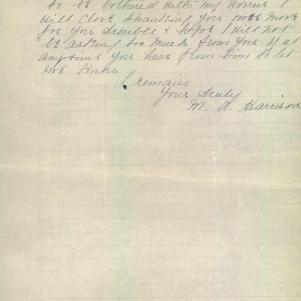 to be bothered with my worries I
will close thanking you once more
for your trouble & hope I will not
be asking too much from you. If at
any time you hear from him to let
me know
I remain
Yours truly
M. A. Harrison